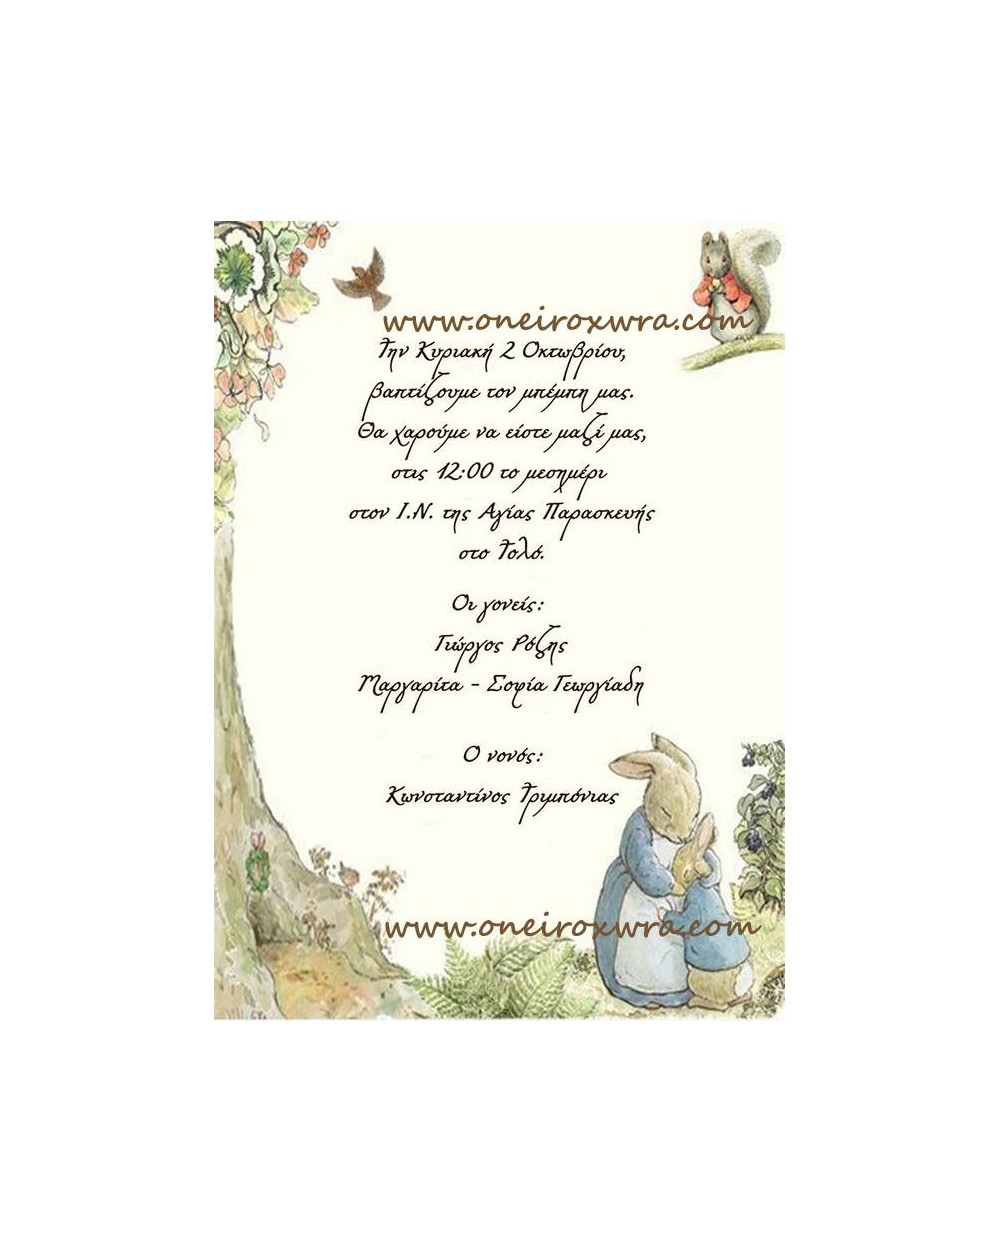 www.oneiroxwra.com
Την Κυριακή 2 Οκτωβρίου,
βαπτίζουμε τον μπέμπη μας.
Θα χαρούμε να είστε μαζί μας,
στις 12:00 το μεσημέρι
στον Ι.Ν. της Αγίας Παρασκευής
στο Τολό.
Οι γονείς:
Γιώργος Ρόζης
Μαργαρίτα - Σοφία Γεωργιάδη
Ο νονός:
Κωνσταντίνος Τριμπόνιας
www.oneiroxwra.com